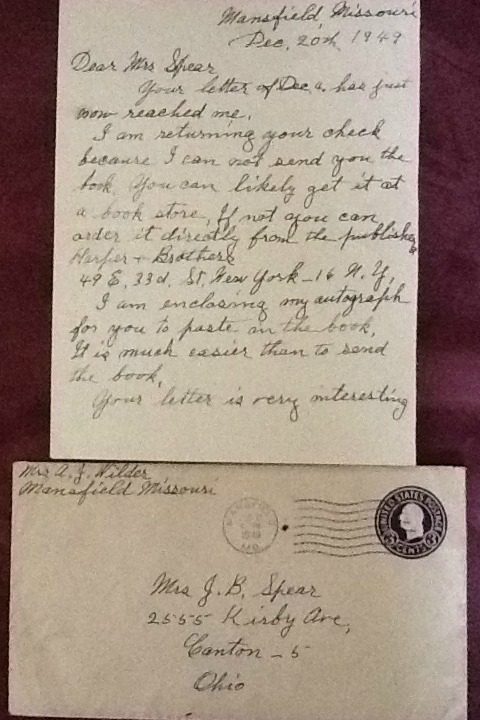 Mansfield, Missouri
Dec. 20th 1949
Dear Mrs Spear
Your letter of Dec. has just
now reached me.
I am returning your check
because I can not send you the
book. You can likely get it at
a book store. If not you can
order it directly from the publishers
Harper + Brothers
49 E. 33d. St. New York - 16 N. Y.
I am enclosing my autograph
for you to paste in the book.
It is much easier than to send
the book.
Your letter is very interesting
Mrs A. J. Wilder
Mansfield Missouri
MANSFIELD
1949
MO.
UNITED STATES POSTAGE
3 CENTS 3
Mrs J. B. Spear
2555 Kirby Ave,
Canton - 5
Ohio